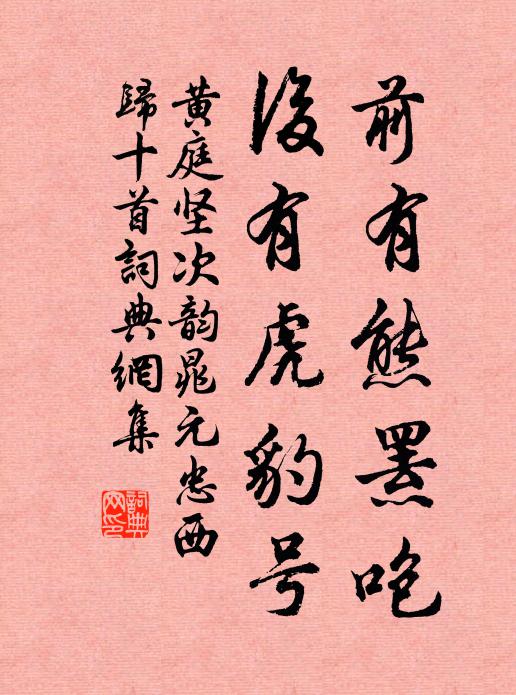 前有熊罴咆
後有虎豹号
黄庭坚次韵晁元忠西
歸十首詞典網集
詞典网印